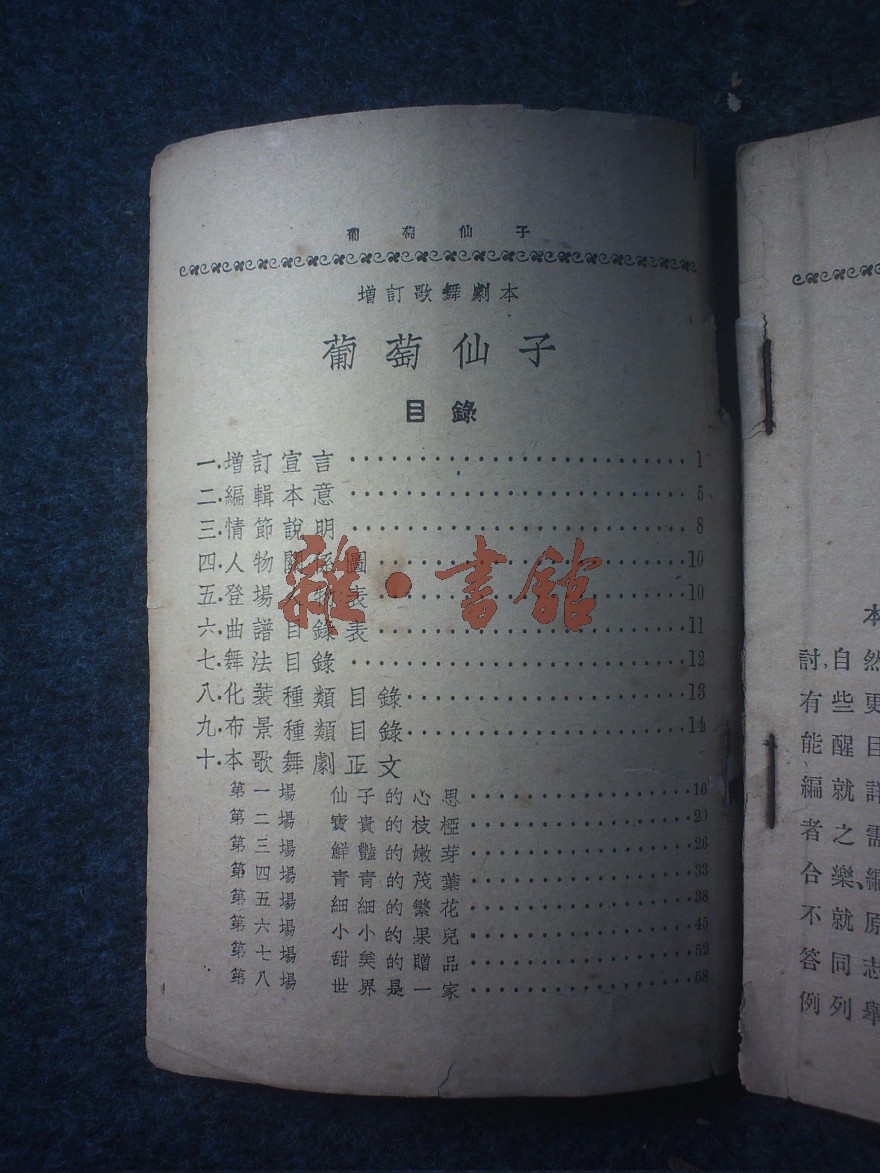 葡萄仙子
增訂歌舞劇本
葡萄仙子
目錄
一.增訂宣言 1
二.編輯本意 5
三.情節說明 8
四.人物關係圖 10
五.登場 物表 10
六.曲譜目錄表 11
七.舞法目錄 12
八.化裝種類目錄 13
九.布景種類目錄 14
十.本歌舞劇正文
第一場 仙子的心思 16
第二場 寶貴的枝椏 20
第三場 鮮豔的嫩芽 26
第四場 青青的茂葉 33
第五場 細細的繁花 38
第六場 小小的果兒 45
第七場 甜美的贈品 52
第八場 世界是一家 58
雜·書館
本
討,自然
有些更
能醒目
編就詳
者之需
合樂、編
不就原
答同志
例列舉